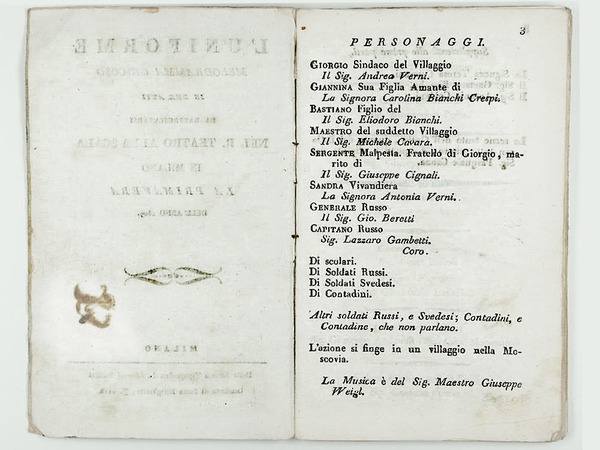 L'UNIFORME
MELODRAMMA GIOCOSO
IN DUE ATTI
DA RAPPRESENTARSI
NEL R. TEATRO ALLA SCALA
IN MILANO
LA PRIMAVERA
DELL'ANNO
MILANO
3
PERSONAGGI.
GIORGIO Sindaco del Villaggio
Il Sig. Andrea Verni.
GIANNINA Sua Figlia Amante di
La Signora Carolina Bianchi Crespi.
BASTIANO Figlio del
Il Sig. Eliodoro Bianchi.
MAESTRO del suddetto Villaggio
Il Sig. Michele Cavara.
SERGENTE Malpesta. Fratello di Giorgio, ma-
rito di
Il Sig. Giuseppe Cignali.
SANDRA Vivandiera
La Signora Antonia Verni.
GENERALE Russo
Il Sig. Gio. Beretti
CAPITANO Russo
Sig. Lazzaro Gambetti.
Coro.
Di scolari.
Di Soldati Russi.
Di Soldati Svedesi.
Di Contadini.
Altri soldati Russi, e Svedesi; Contadini, e
Contadine, che non parlano.
L'azione si finge in un villaggio nella Mo-
scovia.
La Musica è del Sig. Maestro Giuseppe
Weigl.